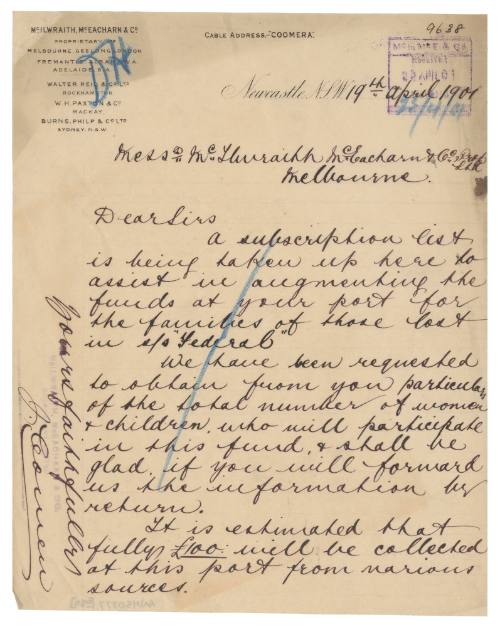 9638
McILWRAITH, McEACHARN & Co
PROPRIETARY
MELBOURNE, GEELONG, LONDON
FREMANTLE
ADELAIDE
WALTER REID & Co LTD
ROCKHAMPTON
W.H. PAXTON & Co
MACKAY
BURNS, PHILP & Co LTD
SYDNEY, N.S.W.
CABLE ADDRESS, "COOMERA"
Newcastle NSW 19th April 1901
Messrs McIlwraith McEacharn & Co
Melbourne.
Dear Sirs
A subscription list
is being taken up here to
assist in augmenting the
funds at your port for
the families of those lost
in s/s "Federal"
We have been requested
to obtain from you particulars
of the total number of women
& children, who will participate
in this fund, & shall be
glad if you will forward
us the information by
return.
It is estimated that
fully £100. will be collected
at this port from various
sources.
Yours faithfully